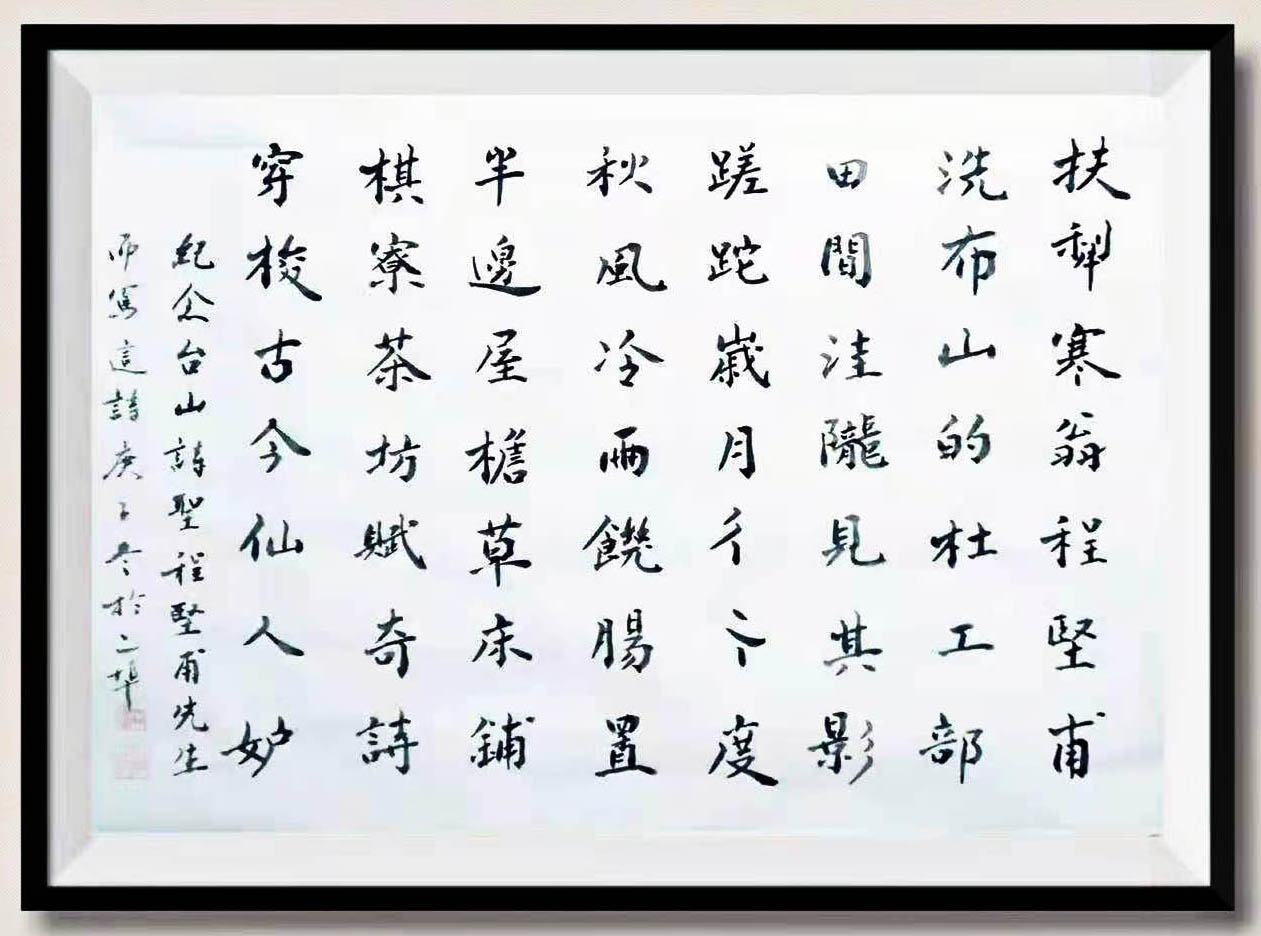 扶犁寒翁程堅甫
洗布山的杜工部
田間洼隴見其影
蹉跎歲月彳亍度
秋風冷雨饑腸置
半邊屋檐草床鋪
棋寮茶坊賦奇詩
穿梭古今仙人妒
紀念台山詩聖程堅甫先生
而寫這詩庚子冬於上埠